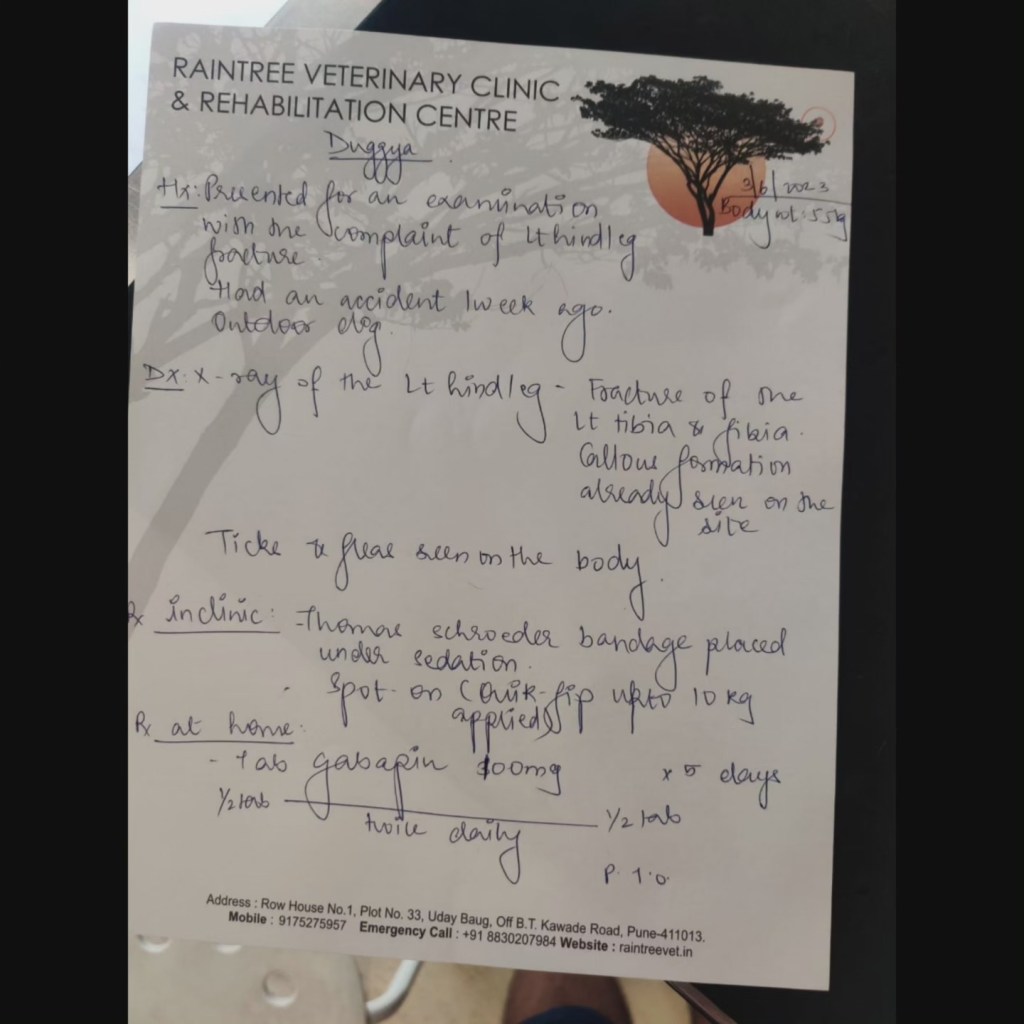 RAINTREE VETERINARY CLINIC
& REHABILITATION CENTRE
Duggya
3/6/2023
Body wt: 5.5kg
Hx: Presented for an examination
with the complaint of Lt hindleg
fracture.
Had an accident 1 week ago.
Outdoor dog.
Dx: X-ray of the Lt hindleg - Fracture of the
Lt tibia & fibia.
Callous formation
already seen on the
site
Ticks & fleas seen on the body.
Rx in clinic: - Thomas schroeder bandage placed
under sedation.
- Spot-on ( upto 10 kg
applied
Rx at home:
- Tab gabapin 100mg x 5 days
1/2 tab 1/2 tab
twice daily
P.T.O.
Address : Row House No.1, Plot No. 33, Uday Baug, Off B.T. Kawade Road, Pune-411013.
Mobile : 9175275957 Emergency Call : +91 8830207984 Website : raintreevet.in